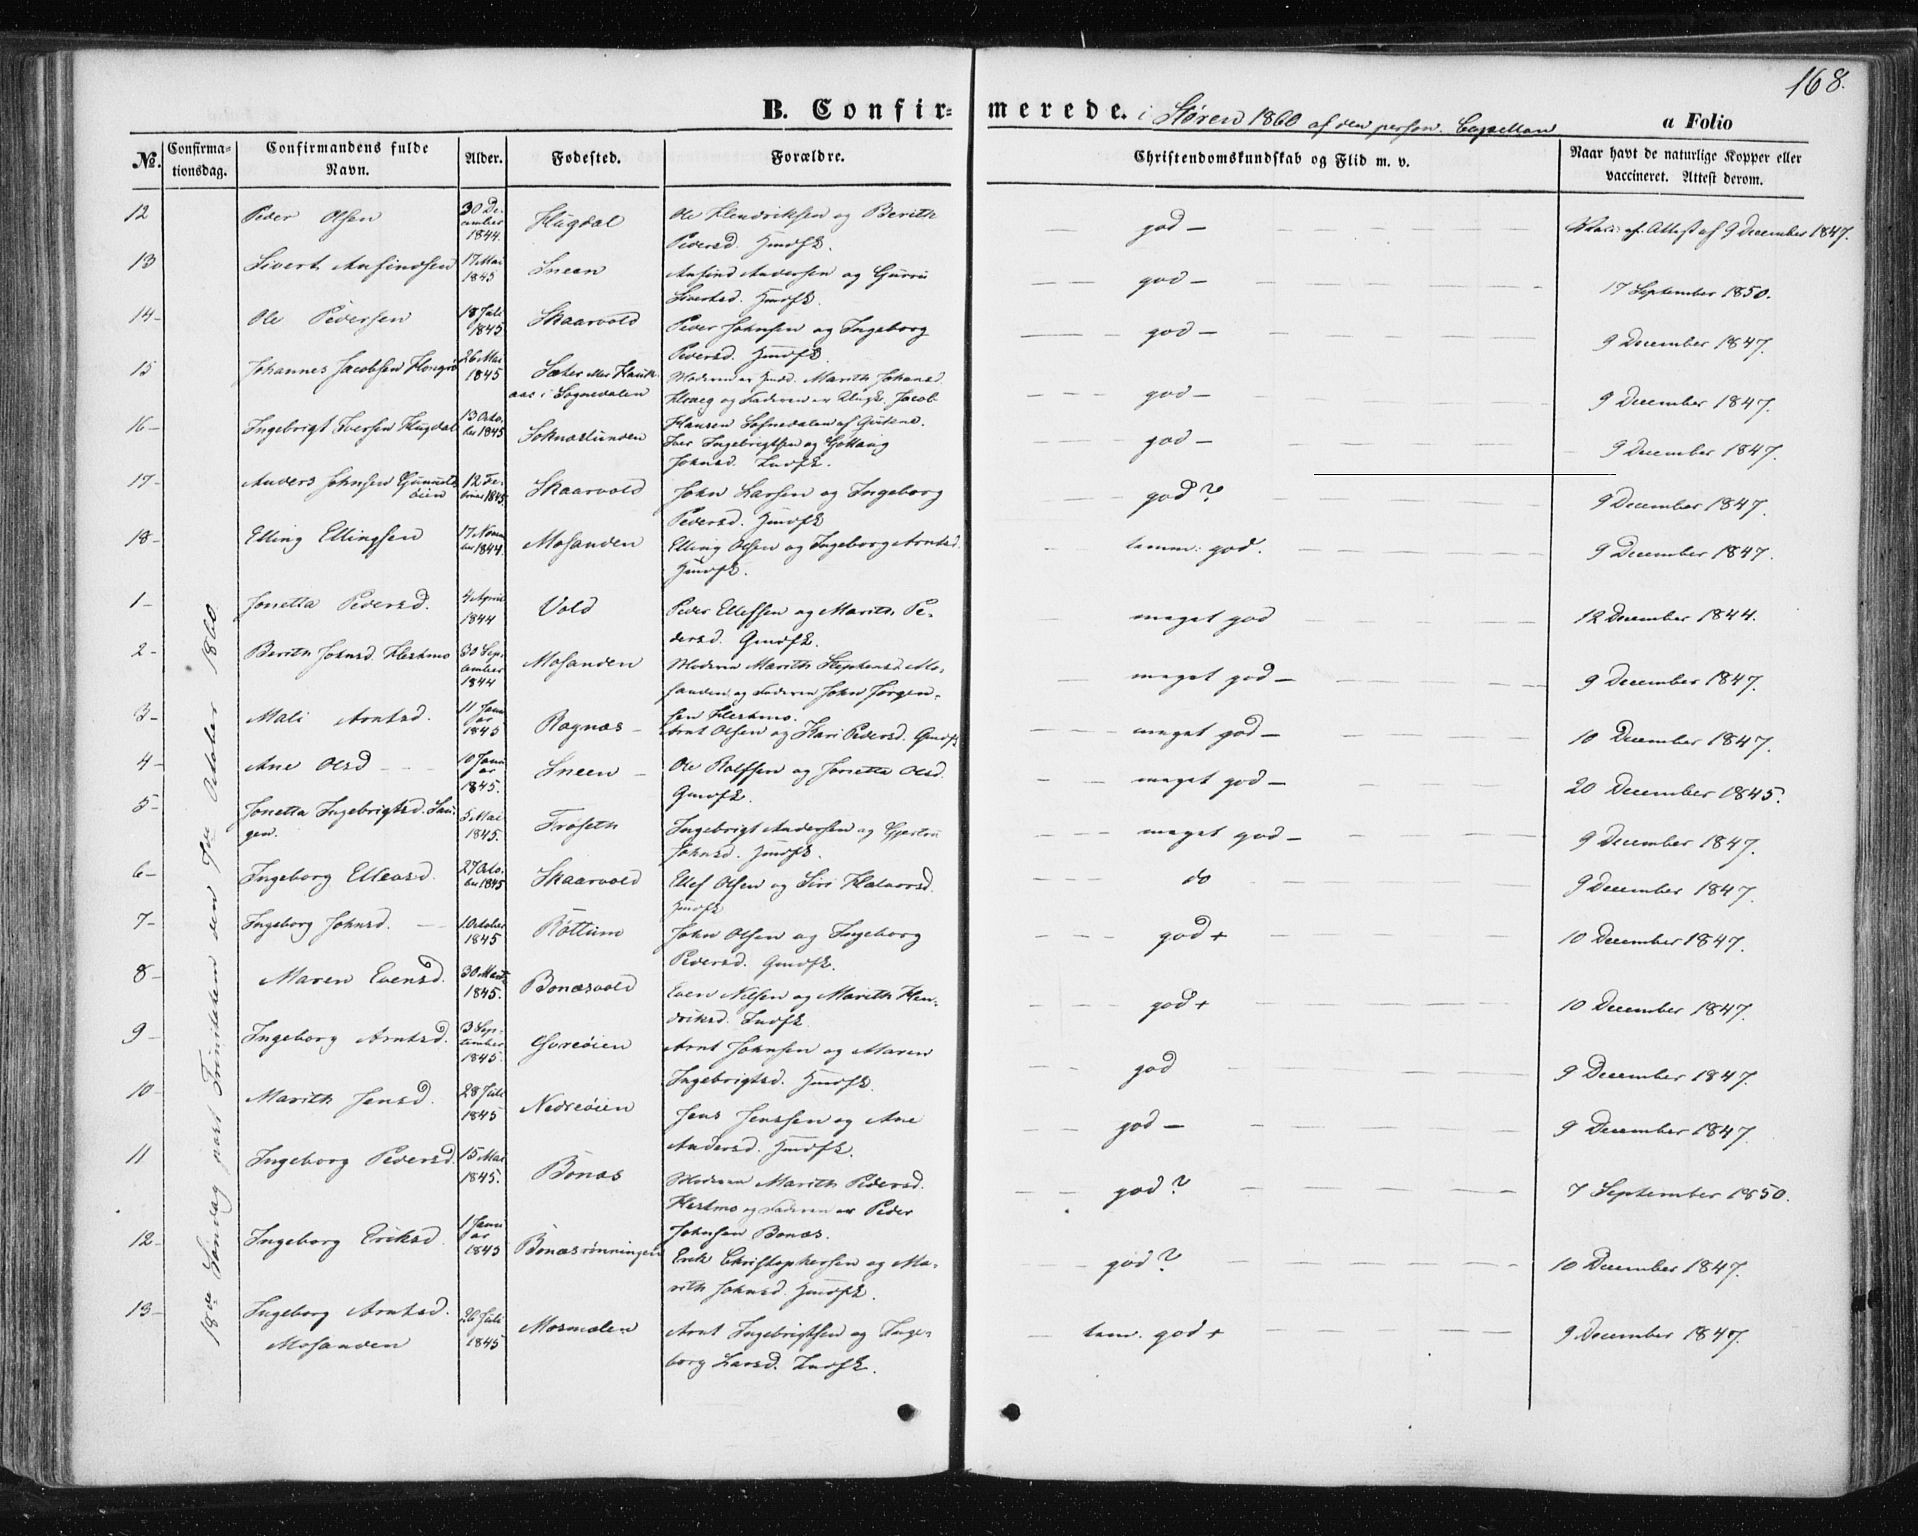 168.
B. Confir- merede. i Støren 1860 af den person. Capellan
a Folio
No. Confirmationsdag. Confirmandens fulde Navn. Alder. Fødested. Forældre. Christendomskundskab og Flid m. v. Naar havt de naturlige Kopper eller vaccineret. Attest derom.
12 Peder Olsen 30 December 1844. Hugdal Ole Hendriksen og Berith Pedersd. Hmdfk. god - Attest af 9 December 1847.
13 Sivert Anfindsen 17 Mai 1845 Sneen Anfind Andersen og Gurru Sivertsd. Hmdfk. god - 17 September 1850.
14- Ole Pedersen 18 Juli 1845 Skaarvold Peder Johnsen og Ingeborg Pedersd. Hmdfk. god - 9 December 1847.
15 Johannes Jacobsen 26 Mai 1845 i Sognedalen Moderen er Marith Johansd. og Faderen er Jacob Hansen god - 9 December 1847.
16- Ingebrigt Iversen Hugdal 13 October 1845 Soknæslunden Iver Ingebrigtsen og Johnsd. Indfk. god - 9 December 1847.
17- Anders Johnsen 12 Februar 1845 Skaarvold John Larsen og Ingeborg Pedersd. Hmdfk god? 9 December 1847.
18- Elling Ellingsen 17 November 1844. Mosanden Elling Olsen og Ingeborg Arntsd. Hmdfk. temm: god. 9 December 1847.
18de Søndag post Trinitden den 7de October 1860
1- Jonetta Pedersd. 4 April 1844 Vold Peder Ellefsen og Marith Pedersd. Gmdfk. meget god 12 December 1844.
2- Berith Johnsd. Hestmo 30 September 1844 Mosanden Moderen Marith Stephensd. Mosanden og Faderen John Jørgensen Hestmo. meget god - 9 December 1847.
3- Mali Arntsd. 11 Januar 1845 Rognæs - Arnt Olsen og Kari Pedersd. Gmdfk meget god - 10 December 1847.
4- Ane Olsd 10 Januar 1845. Sneen - Ole Rolfsen og Jonetta Olsd. Gmdfk. meget god - 20 December 1845.
5- Jonetta Ingebrigtsd. Haugen. 5 Mai 1845. Frøseth Ingebrigt Andersen og Gjertru Johnsd. Hmdfk. meget god - 9 December 1847.
6- Ingeborg Ellevsd. 27 October 1845 Skaarvold Ellef Olsen og Siri Halvorsd. Hmdfk do 9 December 1847.
7- Ingeborg Johnsd. 1 October 1845 Røttum John Olsen og Ingeborg Pedersd. Gmdfk. god + 10 December 1847.
8- Maren Evensd. 30 Marts 1845. Bonæsvold Even Nilsen og Marith Hendriksd. Indfk. god + 10 December 1847.
9- Ingeborg Arntsd. 3 September 1845. Arnt Johnsen og Maren Ingebrigtsd. Hmdfk. god 9 December 1847.
10- Marith Jensd. 28 Juli 1845 Nedreøien Jens Jenssen og Ane Andersd. Hmdfk. god - 9 December 1847.
11 Ingeborg Pedersd. 15 Mai 1845. Bonæs Moderen Marith Pedersd. Hestmo og Faderen er Peder Johnsen Bonæs. god? 7 September 1850.
12- Ingeborg Eriksd. 1 Januar 1845 Bonæsrønningen Erik Christophersen og Marith Johnsd. Hmdfk. god? 10 December 1847.
13- Ingeborg Arntsd. Mosanden 26 Juli 1845 Mosmelen Arnt Ingebrigtsen og Ingeborg Larsd. Indfk. tem. god + 9 December 1847.